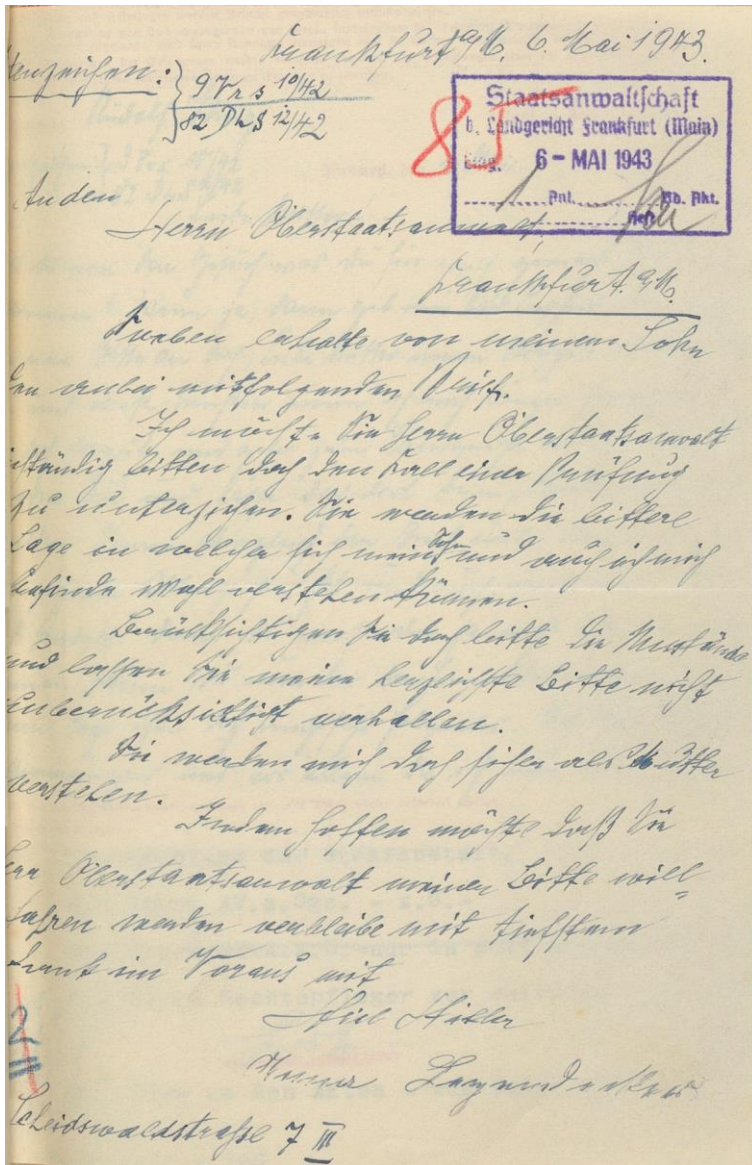 Frankfurt a/M. 6. Mai 1943.
tenzeichen: } 9 Vrs 10/42
82 DLs 12/42
85
Staatsanwaltschaft
b. Landgericht Frankfurt (Main)
Eing. 6 - MAI 1943
Anl. Bd. Akt.
Heft
An den
Herrn Oberstaatsanwalt,
Frankfurt. a/M.
Soeben erhalte von meinem Sohn
den anbei mitfolgenden Brief.
Ich möchte Sie Herrn Oberstaatsanwalt
ständig bitten doch den Fall einer Prüfung
zu unterziehen. Sie werden die bittere
Lage in welcher sich mein Sohn und auch ich mich
befinde wohl verstehen können.
Berücksichtigen Sie doch bitte die Umstände
und lassen Sie meine herzlichste Bitte nicht
unberücksichtigt verhallen.
Sie werden mich doch sicher als Mutter
verstehen.
Indem hoffen möchte daß Sie
Herr Oberstaatsanwalt meiner Bitte will=
fahren werden verbleibe mit tiefstem
Dank im Voraus mit
Heil Hitler
Scheidswaldstraße 7 III